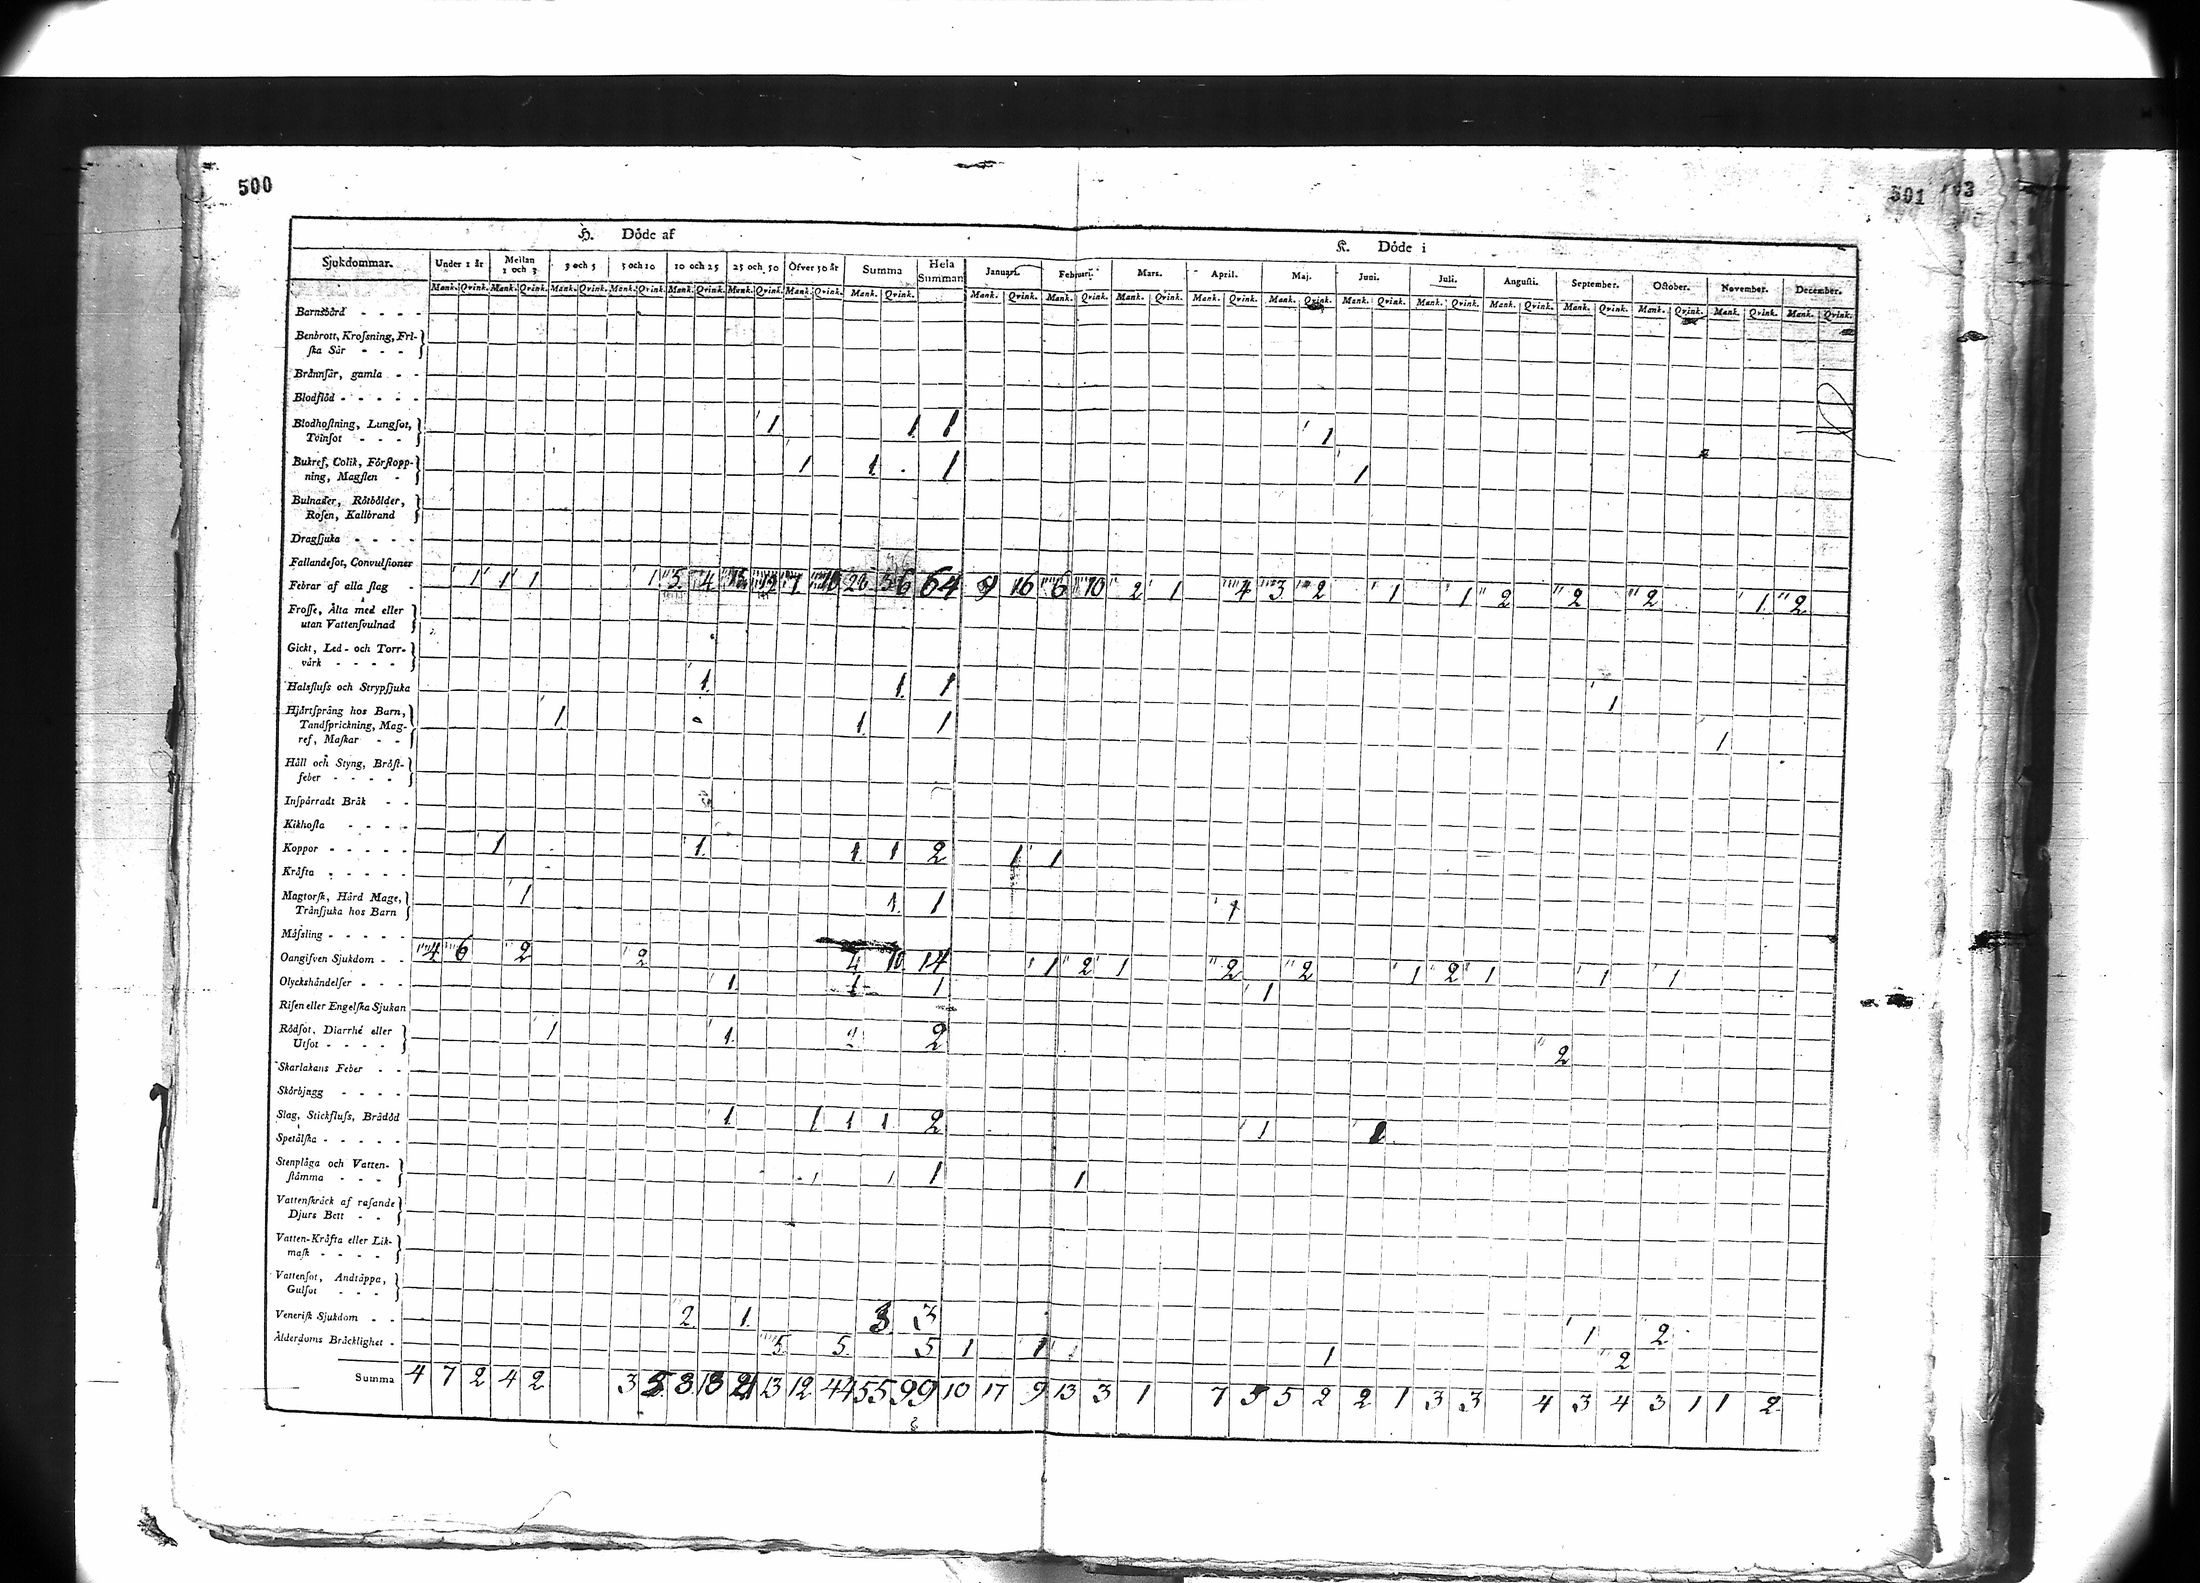 500
501
03
H. Döde af
K. Döde i
Sjukdommar. Under 1 år Mellan 1 och 3 3 och 5 5 och 10 10 och 25 25 och 50 Öfver 50 år Summa Hela Summan Januari. Februari. Mars. April. Maj. Juni. Juli. Augusti. September. October. November. December.
Mank. Qvink. Mank. Qvink. Mank. Qvink. Mank. Qvink. Mank. Qvink. Mank. Qvink. Mank. Qvink. Mank. Qvink. Mank. Qvink. Mank. Qvink. Mank. Qvink. Mank. Qvink. Mank. Qvink. Mank. Qvink. Mank. Qvink. Mank. Qvink. Mank. Qvink. Mank. Qvink. Mank. Qvink. Mank. Qvink.
Barnsbörd - - - -
Benbrott, Krosſning, Fri-
ſka Sår - - -
Brännſår, gamla - -
Blodflöd - - - - -
Blodhoſtning, Lungſot,
Tvinſot - - - 1 1 1 1
Bukref, Colik, Förſtopp-
ning, Magſten - 1 1 1 1
Bulnader, Rötbölder,
Roſen, Kallbrand
Dragſjuka - - - -
Fallandeſot, Convulſioner
Febrar af alla ſlag - 1 1 1 1 5 4 7 64 9 16 6 10 2 1 4 3 2 1 1 2 2 2 1 2
Froſſe, Älta med eller
utan Vattenſvulnad
Gickt, Led- och Torr-
värk - - - -
Halsfluſs och Strypſjuka 1 1 1 1
Hjärtſprång hos Barn,
Tandſprickning, Mag-
ref, Maſkar - - 1 1 1 1
Håll och Styng, Bröſt-
feber - - - -
Inſpärradt Bråk - -
Kikhoſta - - - -
Koppor - - - - - 1 1 1 1 2 1 1
Kräfta - - - - -
Magtorſk, Hård Mage,
Tränſjuka hos Barn 1 1 1 1
Mäſsling - - - - -
Oangifven Sjukdom - - 4 6 2 2 4 10 14 1 2 1 2 2 1 2 1 1 1
Olyckshändelſer - - - 1 1 1 1
Riſen eller Engelſka Sjukan
Rödſot, Diarrhé eller
Utſot - - - - 1 1 2 2 2
Skarlakans Feber - -
Skörbjugg - - - -
Slag, Stickfluſs, Brådöd 1 1 1 1 2 1 1
Spetälſka - - - - -
Stenplåga och Vatten-
ſtämma - - - 1 1 1 1
Vattenſkräck af raſande
Djurs Bett - -
Vatten-Kräfta eller Lik-
maſk - - - -
Vattenſot, Andtäppa,
Gulſot - - -
Veneriſk Sjukdom - - 2 1 3 3 1 2
Ålderdoms Bräcklighet - 5 5 5 1 1 1 2
Summa 4 7 2 4 2 3 5 8 13 21 13 12 44 55 99 10 17 9 13 3 1 7 5 5 2 2 1 3 3 4 3 4 3 1 1 2